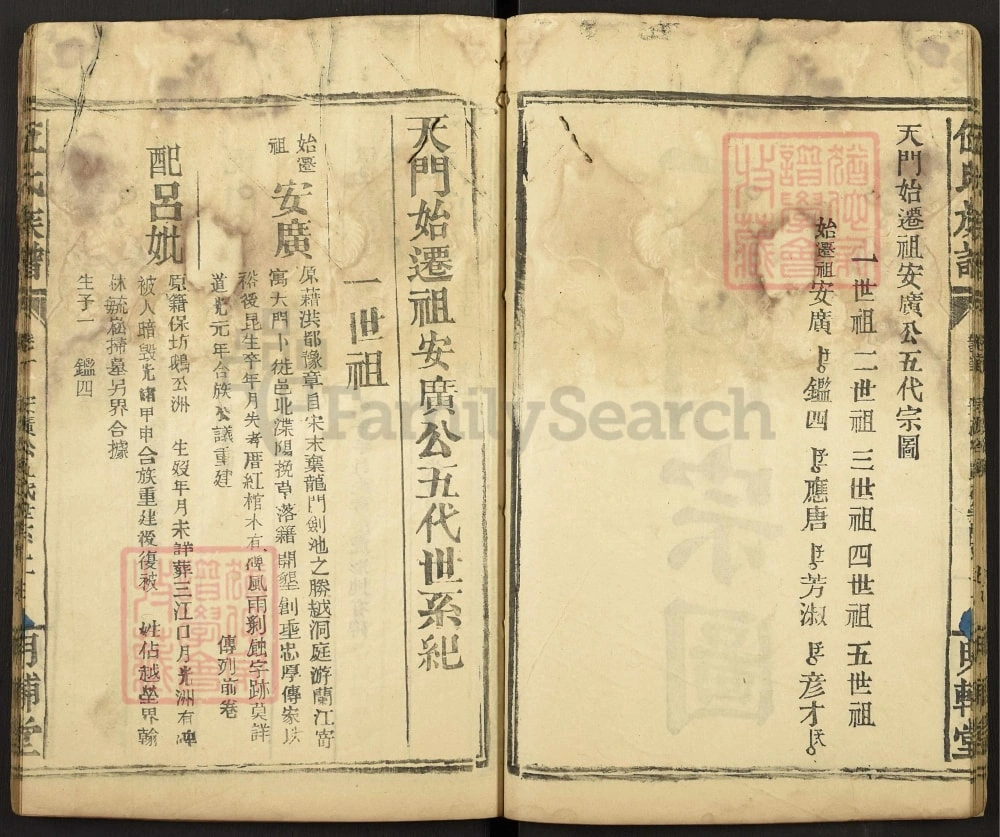 天門始遷祖安廣公五代宗圖
一世祖 二世祖 三世祖 四世祖 五世祖
始遷祖安廣 鑑四 應唐 芳淑 彦才
天門始遷祖安廣公五代世系紀
一世祖
始遷祖 安廣
原藉洪都豫章自宋末棄龍門劍池之勝越洞庭游蘭江寄
寓天門卜徙邑北渫陽挽草落籍開墾創垂忠厚傳家以
裕後昆生卒年月失考厝紅棺木有碑風雨剝蝕字跡莫詳
道光元年合族公議重建 傳列前卷
配呂妣
原籍保坊鵝公洲 生歿年月未詳葬三江口月光洲有碑
被人暗毀光緒甲申合族重建後復被 姓佔越塋界翰
林毓崧掃墓另界合據
生子一 鑑四
伍氏族譜
明輔堂
猶他家譜學會收藏
FamilySearch